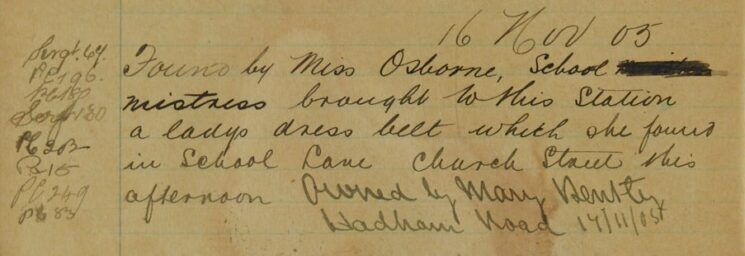 16 Nov 05
Sergt. 64
PC 196.
Found by Miss Osborne, School
mistress brought to this Station
Sergt 130
a ladys dress belt which she found
PC 202
in School Lane Church Street this
PC 249
afternoon Owned by Mary Bentley
PC 83
Hadham Road 17/11/05